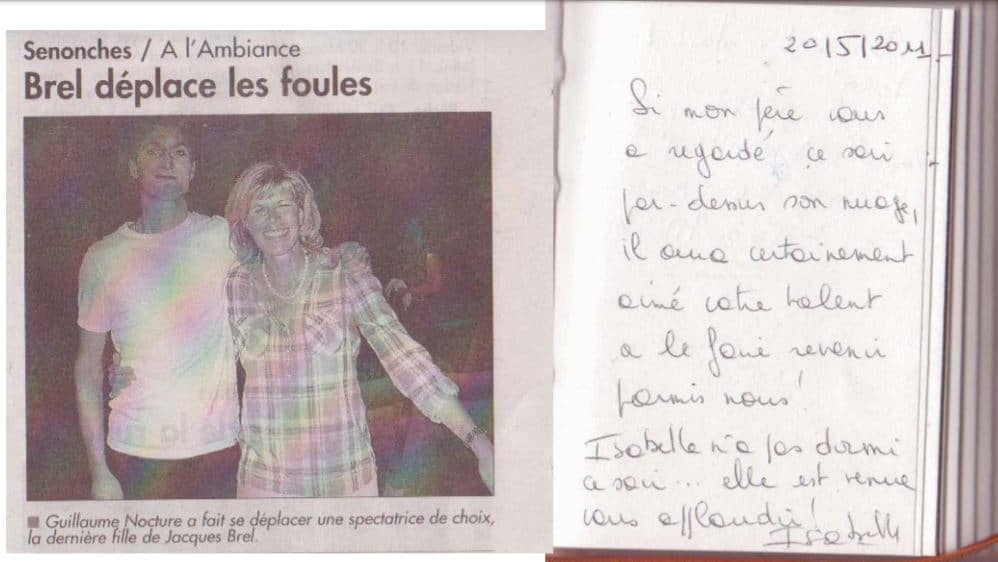 Senonches / A l'Ambiance
Brel déplace les foules
Guillaume Nocture a fait se déplacer une spectatrice de choix,
la dernière fille de Jacques Brel.
20/5/2011
Si mon père vous
a regardé ce soir
par-dessus son nuage,
il aura certainement
aimé votre talent
a le faire revenir
parmis nous!
Isabelle n'a pas dormi
ce soir... elle est venue
vous applaudir!
Isabelle